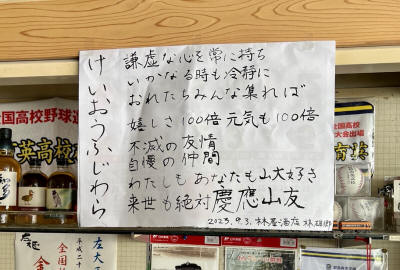 けいおうふじわら
謙虚な心を常に持ち
いかなる時も冷静に
おれたちみんな集れば
嬉しさ100倍 元気も100倍
不滅の友情
自慢の仲間
わたしもあなたも山大好き
来世も絶対慶應山友
2023.9.3.
全国高校野球選
英高校
全国高校
大会出場
平成二十
全国
左大